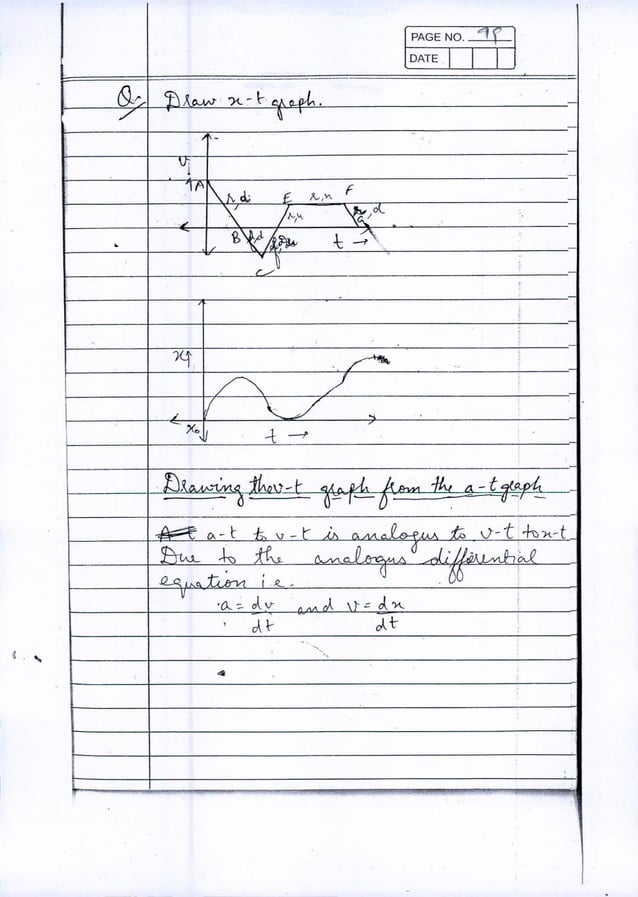 PAGE NO. 98
DATE
Q. Draw x-t graph.
v
↑A
r,d
E r,n F
r,u
d
B
d,d
G
t →
C
x↑
x₀
t →
Drawing the v-t graph from the a-t graph
a-t to v-t is analogus to v-t to x-t
Due to the analogus differential
equation i.e.
a = dv/dt and v = dx/dt